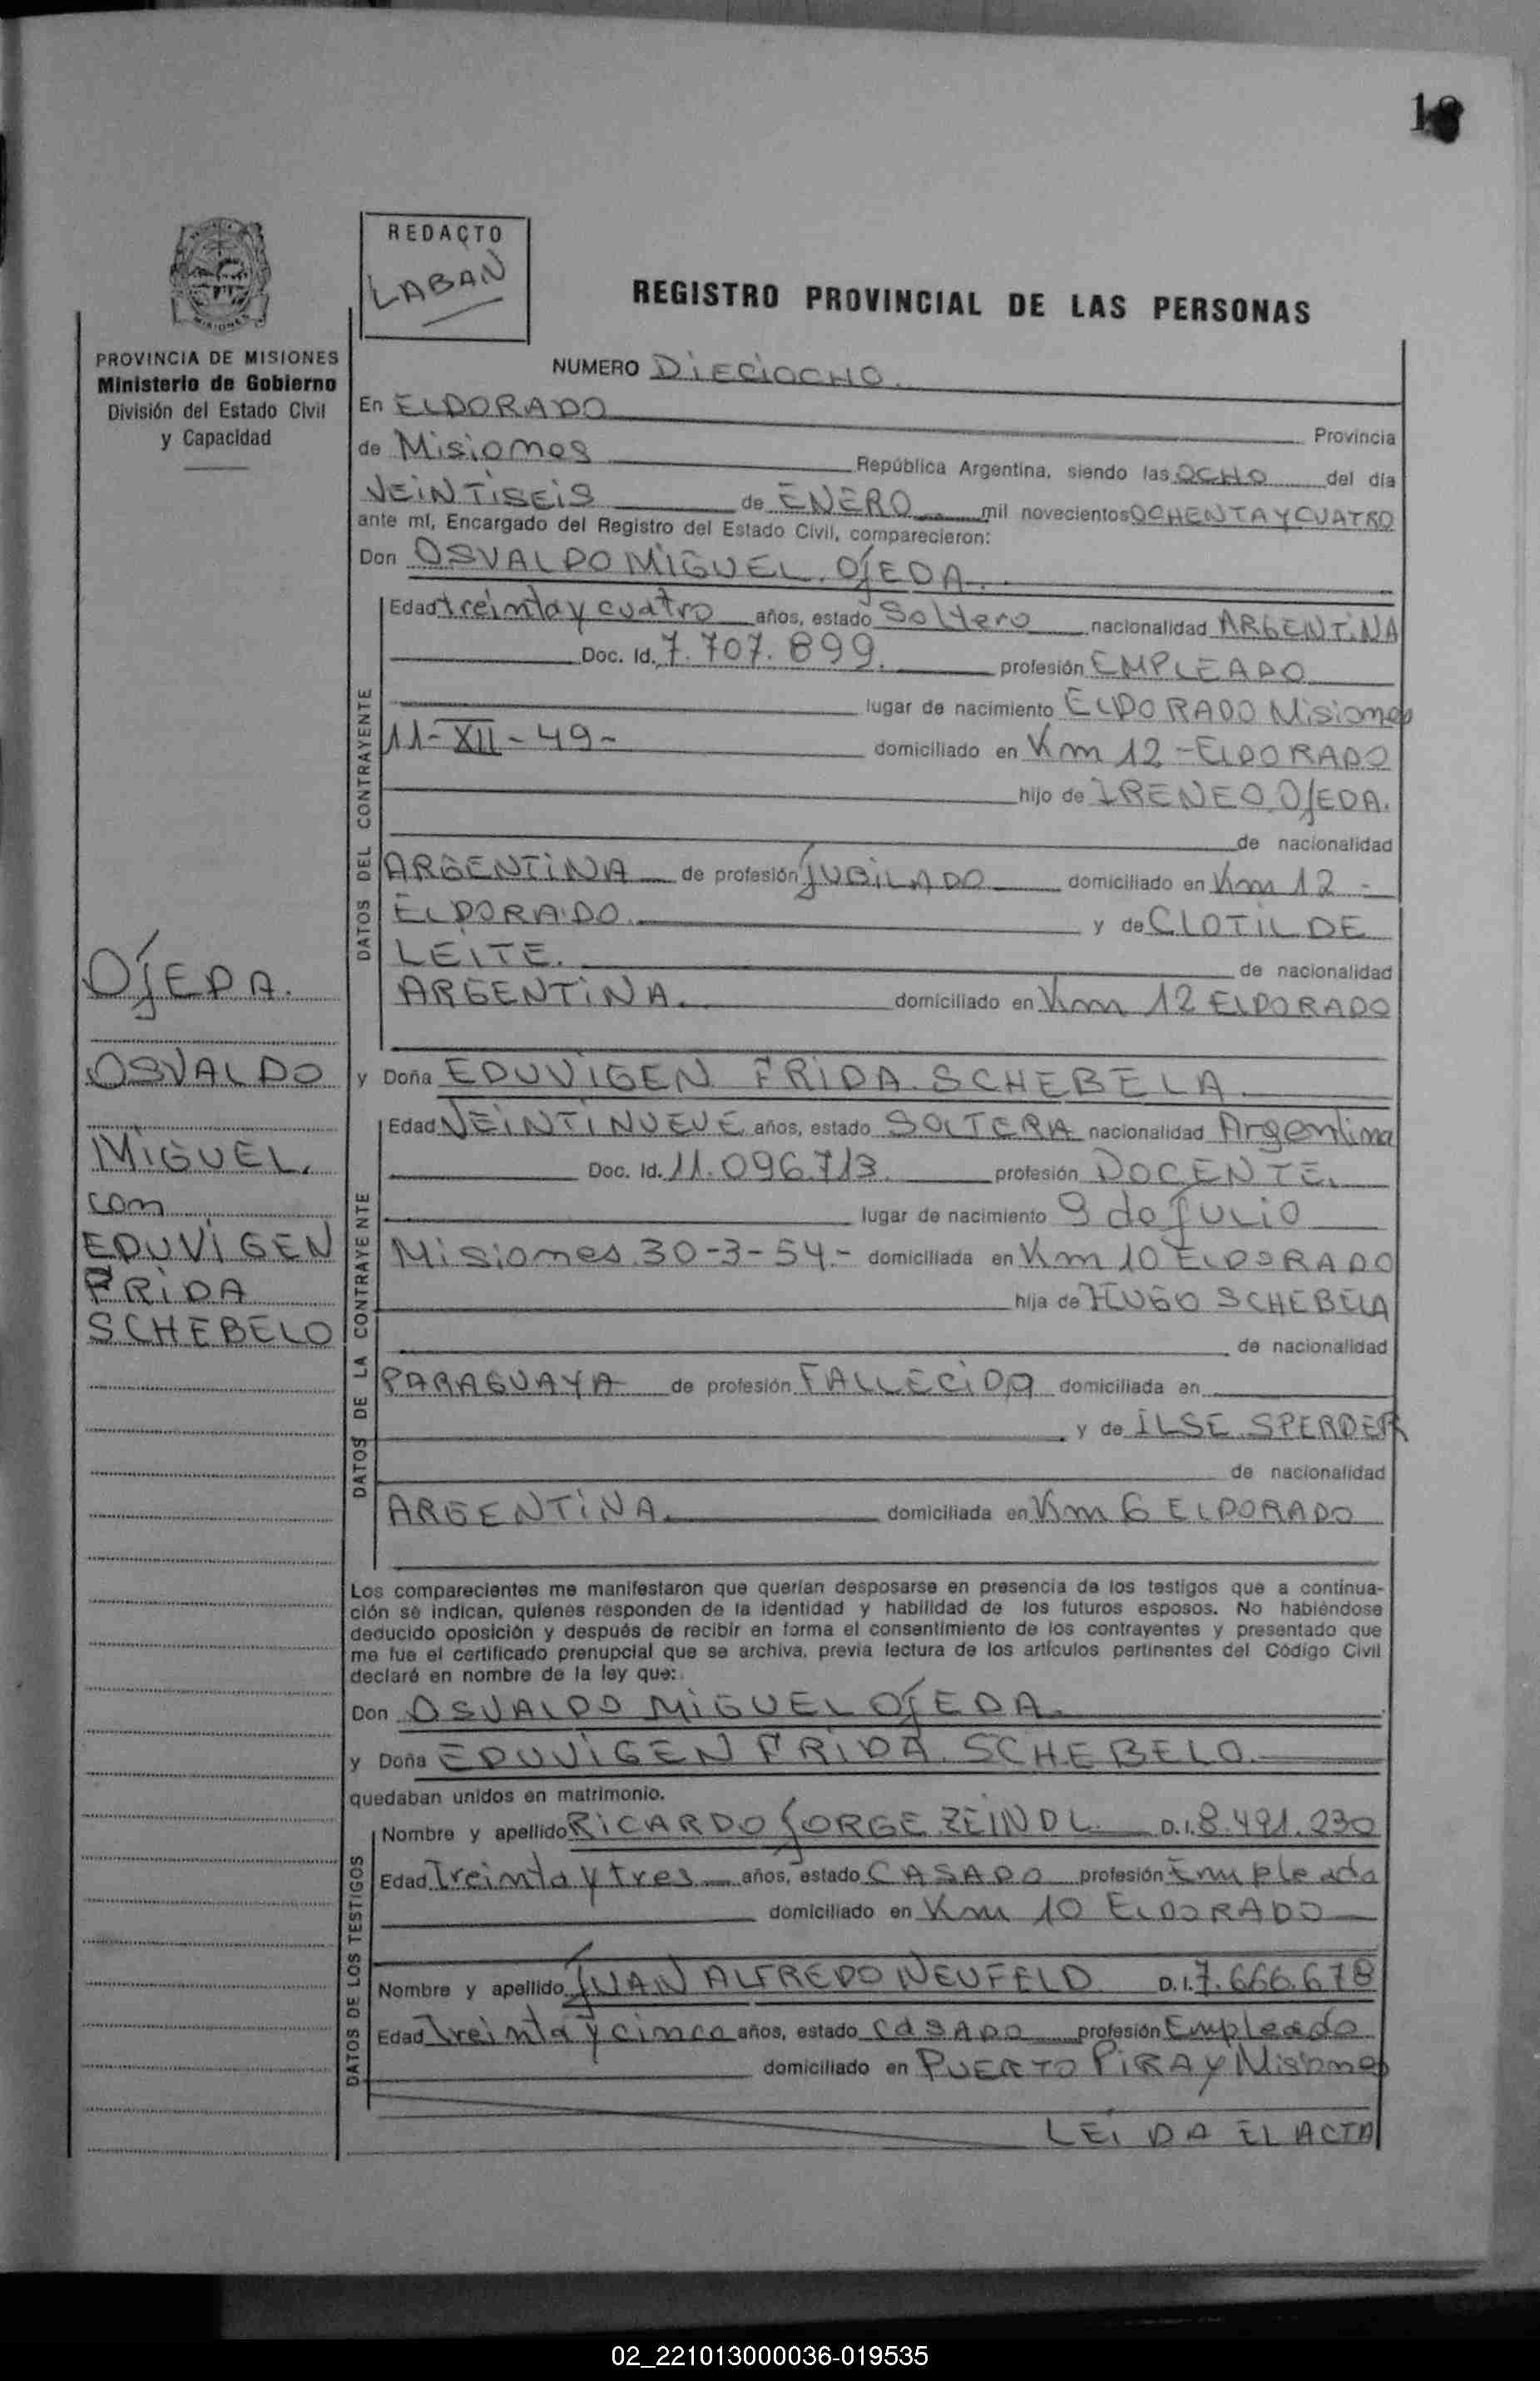 18
REDACTO
LABAN
REGISTRO PROVINCIAL DE LAS PERSONAS
MISIONES
PROVINCIA DE MISIONES
Ministerio de Gobierno
División del Estado Civil
y Capacidad
OJEDA.
OSVALDO
MIGUEL.
con
EDUVIGEN
FRIDA
SCHEBELO
NUMERO DIECIOCHO
En ELDORADO Provincia
de Misiones República Argentina, siendo las OCHO del día
VEINTISEIS de ENERO mil novecientos OCHENTA Y CUATRO
ante mí, Encargado del Registro del Estado Civil, comparecieron:
Don OSVALDO MIGUEL OJEDA.
DATOS DEL CONTRAYENTE
Edad treinta y cuatro años, estado Soltero nacionalidad ARGENTINA
Doc. Id. 7.707.899. profesión EMPLEADO
lugar de nacimiento ELDORADO Misiones
11-XII-49- domiciliado en Km 12 - ELDORADO
hijo de IRENEO OJEDA.
de nacionalidad
ARGENTINA de profesión JUBILADO domiciliado en Km 12 -
ELDORADO. y de CLOTILDE
LEITE. de nacionalidad
ARGENTINA. domiciliado en Km 12 ELDORADO
y Doña EDUVIGEN FRIDA SCHEBELA
DATOS DE LA CONTRAYENTE
Edad VEINTINUEVE años, estado SOLTERA nacionalidad Argentina
Doc. Id. 11.096.713. profesión DOCENTE.
lugar de nacimiento 9 de JULIO
Misiones 30-3-54.- domiciliada en Km 10 ELDORADO
hija de HUGO SCHEBELA
de nacionalidad
PARAGUAYA de profesión FALLECIDO domiciliada en
y de ILSE SPERDER
de nacionalidad
ARGENTINA. domiciliada en Km 6 ELDORADO
Los comparecientes me manifestaron que querían desposarse en presencia de los testigos que a continua-
ción se indican, quienes responden de la identidad y habilidad de los futuros esposos. No habiéndose
deducido oposición y después de recibir en forma el consentimiento de los contrayentes y presentado que
me fue el certificado prenupcial que se archiva, previa lectura de los artículos pertinentes del Código Civil
declaré en nombre de la ley que:
Don OSVALDO MIGUEL OJEDA.
y Doña EDUVIGEN FRIDA SCHEBELO.
quedaban unidos en matrimonio.
DATOS DE LOS TESTIGOS
Nombre y apellido RICARDO JORGE ZEINDL D.I. 8.491.230
Edad Treinta y tres años, estado CASADO profesión Empleado
domiciliado en Km 10 ELDORADO
Nombre y apellido JUAN ALFREDO NEUFELD D.I. 7.666.678
Edad Treinta y cinco años, estado CASADO profesión Empleado
domiciliado en PUERTO PIRAY Misiones
LEIDA EL ACTA
02_221013000036-019535